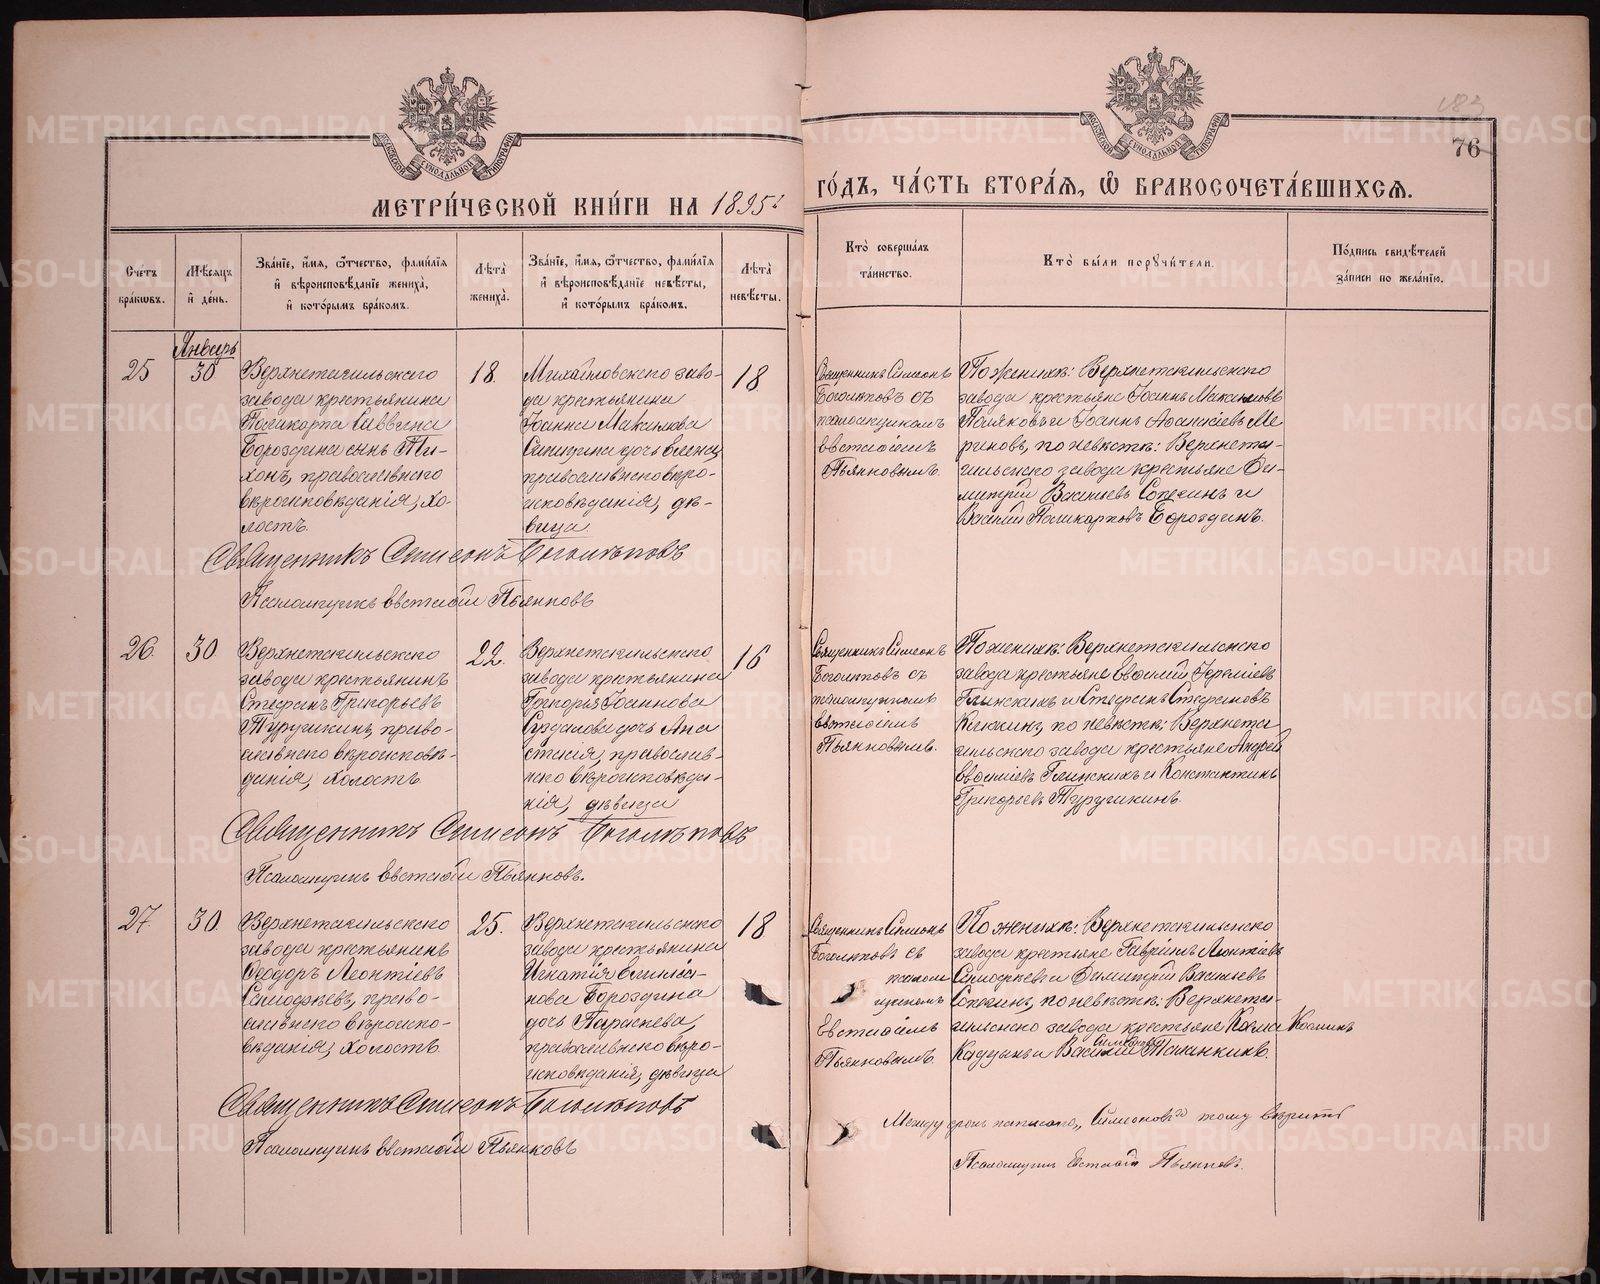 МЕТРИ́ЧЕСКОЙ КНИ́ГИ НА 1895й
ГО́ДЪ, ЧА́СТЬ ВТОРА́Ѧ, Ѽ БРАКОСОЧЕТА́ВШИХСѦ.
183
76
Сче́тъ бра́кѡвъ.
Мѣ́сѧцъ и҆ де́нь.
Зва́нїе, и҆́мѧ, ѻ҆́тчество, фами́лїѧ
и҆ вѣроисповѣ́данїе жениха̀,
и҆ кото́рымъ бра́комъ.
Лѣ́та жениха̀.
Зва́нїе, и҆́мѧ, ѻ҆́тчество, фами́лїѧ
и҆ вѣроисповѣ́данїе невѣ́сты,
и҆ кото́рымъ бра́комъ.
Лѣ́та невѣ́сты.
Кто̀ соверша́лъ
та́инство.
Кто̀ бы́ли порꙋчи́тели.
По́дпись свидѣ́телей
за́писи по жела́нїю.
Январь
25
30
Верхнетагильскаго
завода крестьянина
Поликарпа Саввина
Бороздина сынъ Ти-
хонъ, православнаго
вѣроисповѣданія, хо-
лостъ
18.
Михайловскаго заво-
да крестьянина
Іоанна Максимова
дочь Елена,
православнаго вѣро-
исповѣданія, дѣ-
вица
18
Священникъ Симеонъ
Боголѣповъ съ
псаломщикомъ
Евстафіемъ
Пьянковымъ.
По женихѣ: Верхнетагильскаго
завода крестьяне Іоаннъ Максимовъ
Поляковъ и Іоаннъ Аѳанасіевъ Ме-
риновъ, по невѣстѣ: Верхнета-
гильскаго завода крестьяне Ди-
митрій Васильевъ Сопегинъ и
Василій Поликарповъ Бороздинъ.
Священникъ Симеонъ Боголѣповъ
Псаломщикъ Евстафій Пьянковъ
26.
30.
Верхнетагильскаго
завода крестьянинъ
Стефанъ Григорьевъ
Туручкинъ, право-
славнаго вѣроисповѣ-
данія, холостъ
22.
Верхнетагильскаго
завода крестьянина
Григорья Іоаннова
Суздалова дочь Ана-
стасія, православ-
наго вѣроисповѣда-
нія, дѣвица
16
Священникъ Симеонъ
Боголѣповъ съ
псаломщикомъ
Евстафіемъ
Пьянковымъ.
По женихѣ: Верхнетагильскаго
завода крестьяне Евфимій Іереміевъ
Глинскихъ и Стефанъ Стефановъ
по невѣстѣ: Верхнета-
гильскаго завода крестьяне Андрей
Евфиміевъ Глинскихъ и Константинъ
Григорьевъ Туручкинъ.
Священникъ Симеонъ Боголѣповъ
Псаломщикъ Евстафій Пьянковъ.
27.
30.
Верхнетагильскаго
завода крестьянинъ
Ѳеодоръ Леонтіевъ
право-
славнаго вѣроиспо-
вѣданія, холостъ.
25.
Верхнетагильскаго
завода крестьянина
Игнатія
Бороздина
дочь Параскева,
православнаго вѣро-
исповѣданія, дѣвица
18
Священникъ Симеонъ
Боголѣповъ съ
псалом-
щикомъ
Евстафіемъ
Пьянковымъ.
По женихѣ: Верхнетагильскаго
завода крестьяне Гавріилъ Леонтіевъ
и Димитрій Васильевъ
Сопегинъ, по невѣстѣ: Верхнета-
гильскаго завода крестьяне Косма Косминъ
Симеоновъ
и Василій
Священникъ Симеонъ Боголѣповъ
Псаломщикъ Евстафій Пьянковъ
Между строкъ написано „Симеоновъ" тому вѣрить
Псаломщикъ Евстафій Пьянковъ.